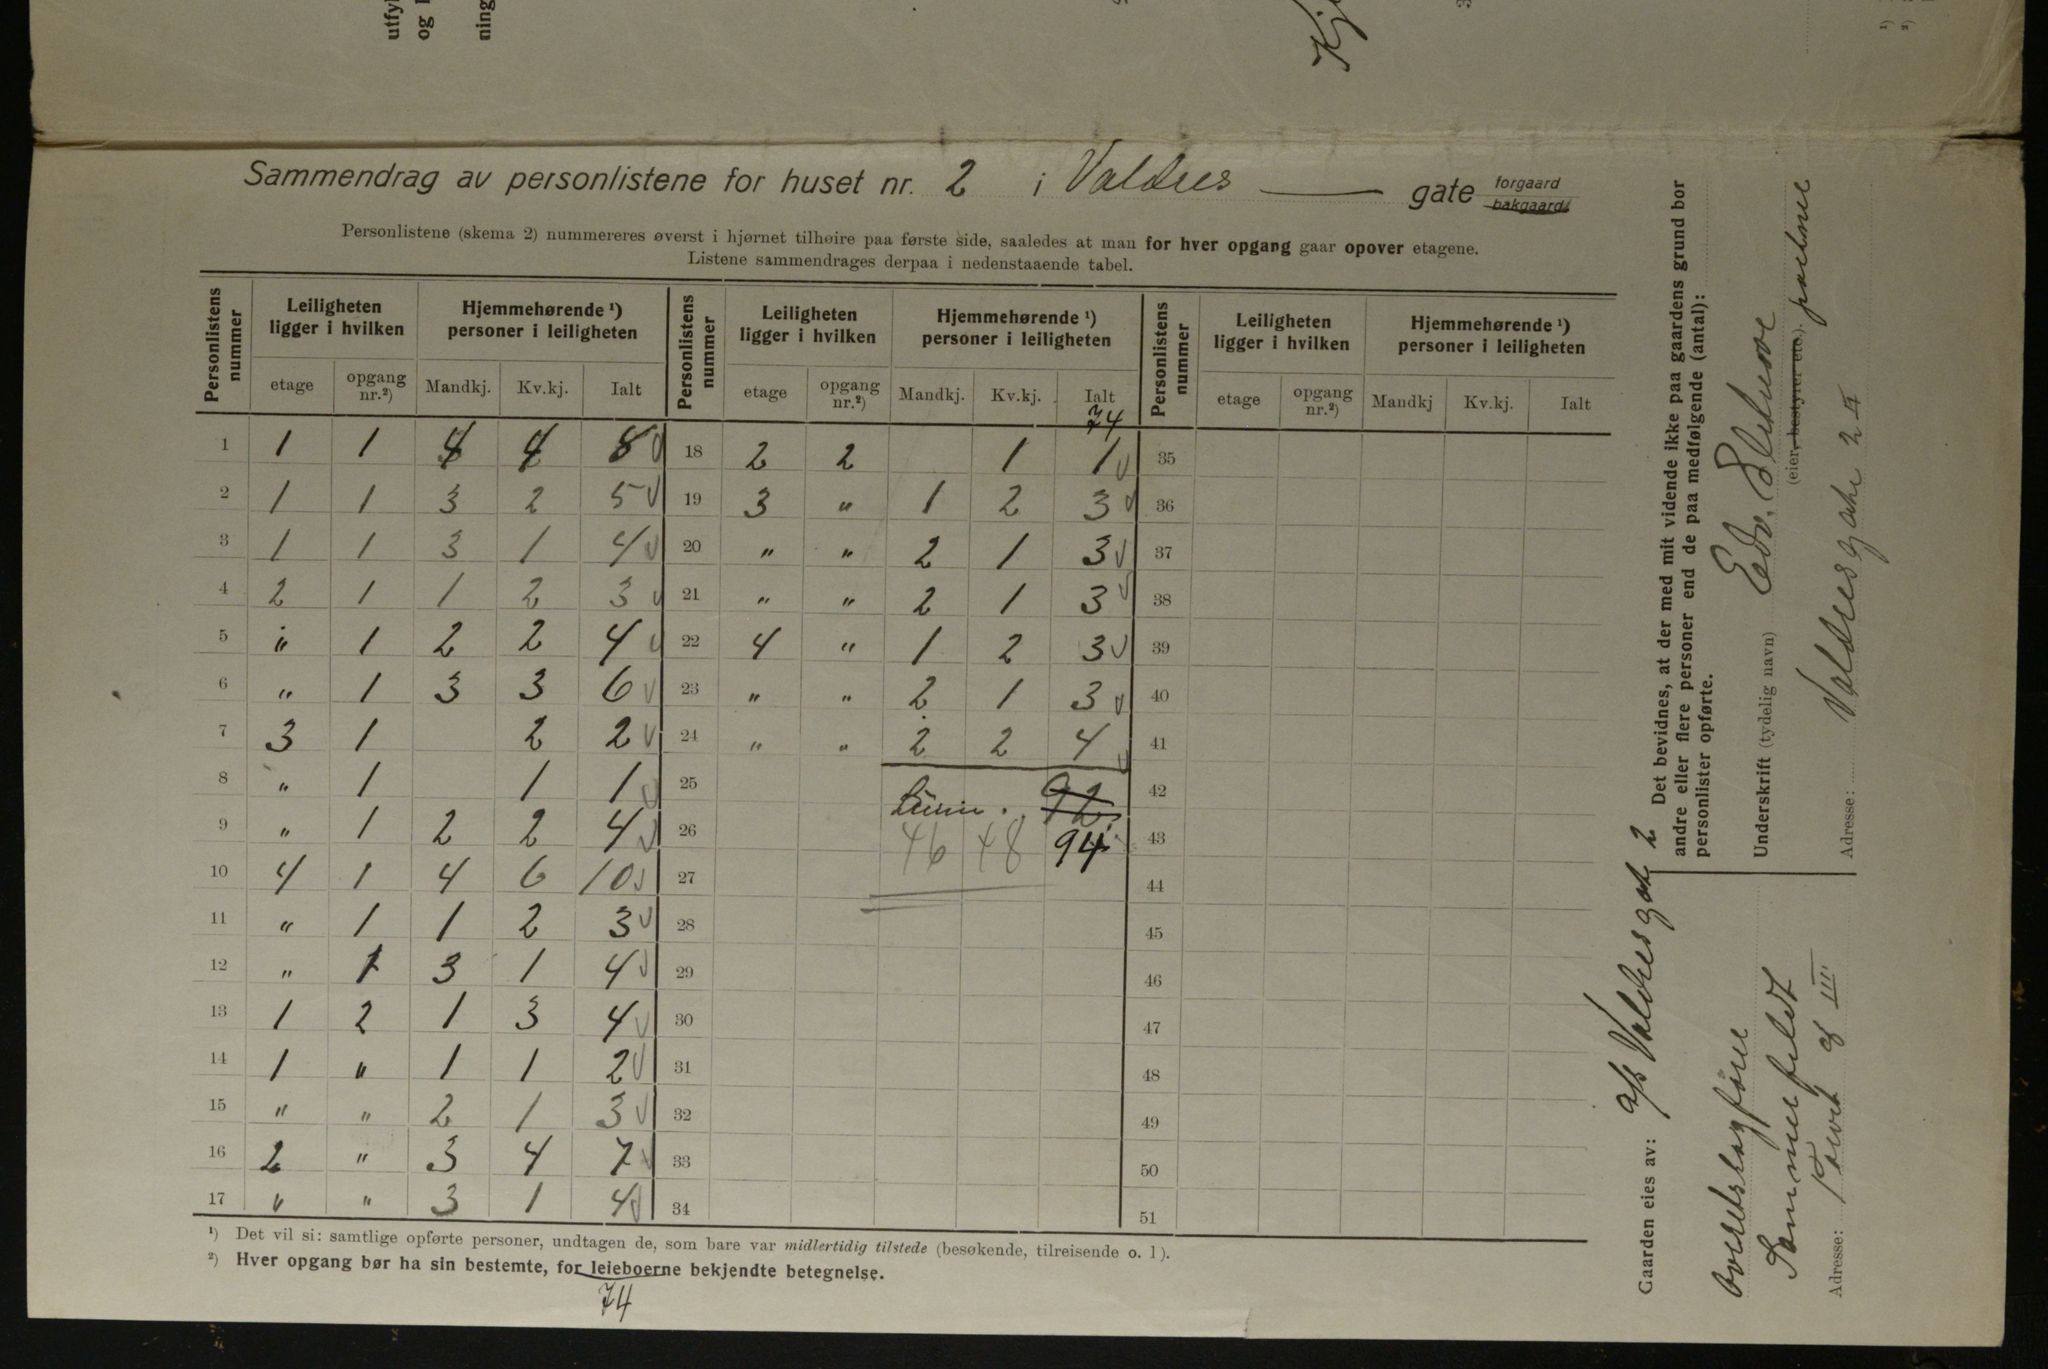 utfyl
og l
ning
Kje
Sammendrag av personlistene for huset nr. 2 i Valdres gate forgaard bakgaard
Personlistene (skema 2) nummereres øverst i hjørnet tilhøire paa første side, saaledes at man for hver opgang gaar opover etagene.
Listene sammendrages derpaa i nedenstaaende tabel.
Personlistens nummer | Leiligheten ligger i hvilken | Hjemmehørende ¹) personer i leiligheten | Personlistens nummer | Leiligheten ligger i hvilken | Hjemmehørende ¹) personer i leiligheten | Personlistens nummer | Leiligheten ligger i hvilken | Hjemmehørende ¹) personer i leiligheten
etage | opgang nr.²) | Mandkj. | Kv.kj. | Ialt | etage | opgang nr.²) | Mandkj. | Kv.kj. | Ialt | etage | opgang nr.²) | Mandkj | Kv.kj. | Ialt
74
1 | 1 | 1 | 4 | 4 | 8 | 18 | 2 | 2 | | 1 | 1 | 35
2 | 1 | 1 | 3 | 2 | 5 | 19 | 3 | " | 1 | 2 | 3 | 36
3 | 1 | 1 | 3 | 1 | 4 | 20 | " | " | 2 | 1 | 3 | 37
4 | 2 | 1 | 1 | 2 | 3 | 21 | " | " | 2 | 1 | 3 | 38
5 | " | 1 | 2 | 2 | 4 | 22 | 4 | " | 1 | 2 | 3 | 39
6 | " | 1 | 3 | 3 | 6 | 23 | " | " | 2 | 1 | 3 | 40
7 | 3 | 1 | | 2 | 2 | 24 | " | " | 2 | 2 | 4 | 41
8 | " | 1 | | 1 | 1 | 25 | | | Summ. | | 92 | 42
9 | " | 1 | 2 | 2 | 4 | 26 | | | 46 | 48 | 94 | 43
10 | 4 | 1 | 4 | 6 | 10 | 27 | | | | | | 44
11 | " | 1 | 1 | 2 | 3 | 28 | | | | | | 45
12 | " | 1 | 3 | 1 | 4 | 29 | | | | | | 46
13 | 1 | 2 | 1 | 3 | 4 | 30 | | | | | | 47
14 | 1 | " | 1 | 1 | 2 | 31 | | | | | | 48
15 | " | " | 2 | 1 | 3 | 32 | | | | | | 49
16 | 2 | " | 3 | 4 | 7 | 33 | | | | | | 50
17 | " | " | 3 | 1 | 4 | 34 | | | | | | 51
¹) Det vil si: samtlige opførte personer, undtagen de, som bare var midlertidig tilstede (besøkende, tilreisende o. l).
²) Hver opgang bør ha sin bestemte, for leieboerne bekjendte betegnelse.
74
Gaarden eies av: A/s Valdresgate 2
Sommerfeldt
Adresse: III
Det bevidnes, at der med mit vidende ikke paa gaardens grund bor
andre eller flere personer end de paa medfølgende (antal):
personlister opførte.
Underskrift (tydelig navn) Edv.
(eier, bestyrer etc.)
Adresse: Valdresgate 2